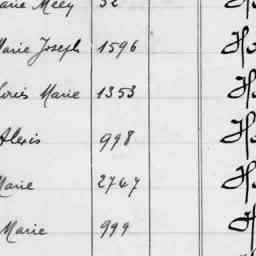 Marie Meey 52
Marie Joseph 1596 Ho
Louis Marie 1353 Ho
Alexis 998 Ho
Marie 2767 Ho
Marie 999 H